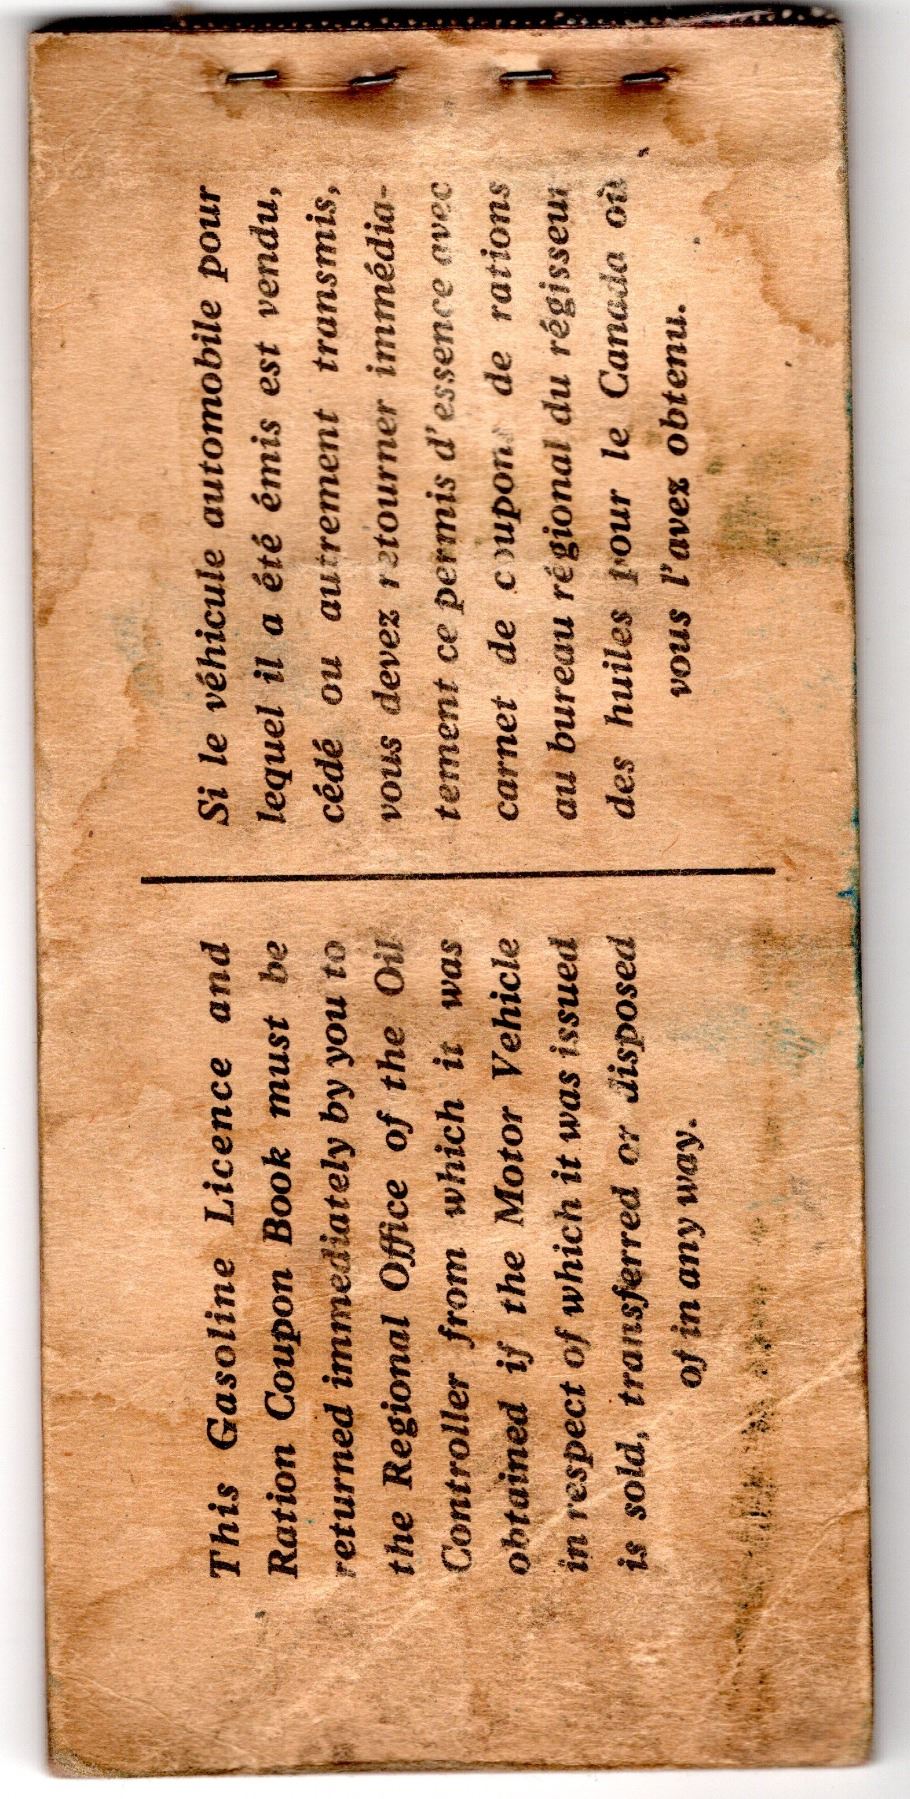 This Gasoline Licence and
Ration Coupon Book must be
returned immediately by you to
the Regional Office of the Oil
Controller from which it was
obtained if the Motor Vehicle
in respect of which it was issued
is sold, transferred or disposed
of in any way.
Si le véhicule automobile pour
lequel il a été émis est vendu,
cédé ou autrement transmis,
vous devez retourner immédia-
tement ce permis d'essence avec
carnet de coupons de rations
au bureau régional du régisseur
des huiles pour le Canada où
vous l'avez obtenu.